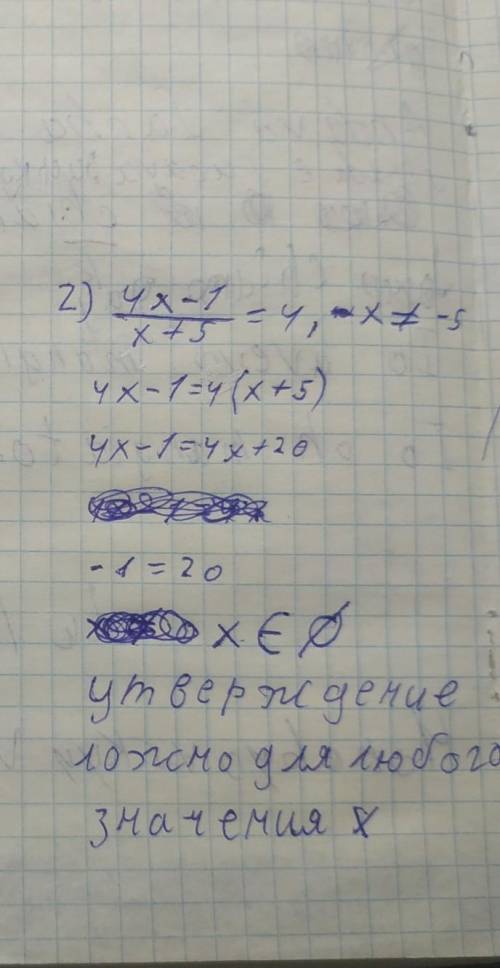 2) (4x-1)/(x+5) = 4, x ≠ -5
4x-1=4(x+5)
4x-1=4x+20
-1=20
x ∈ ∅
утверждение
ложно для любого
значения x